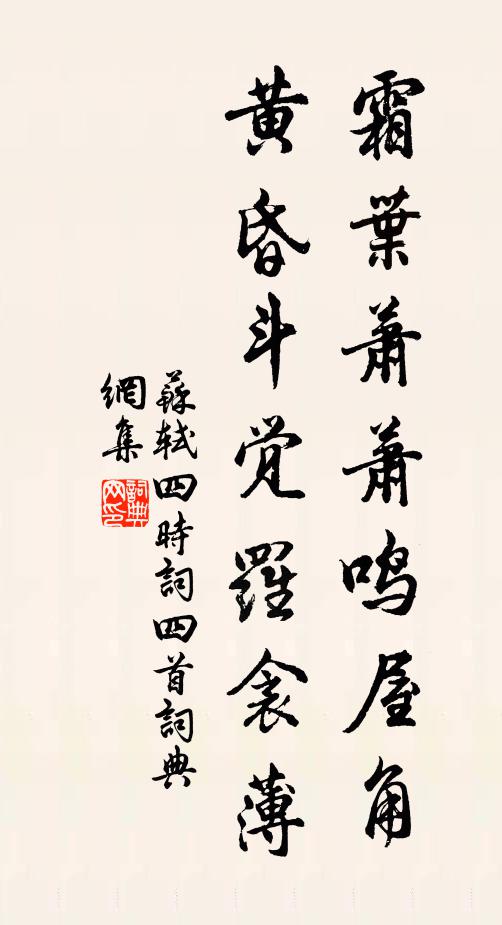 霜葉蕭蕭鸣屋角
黄昏斗觉羅衾薄
蘇軾四時詞四首詞典
網集
詞典
网印